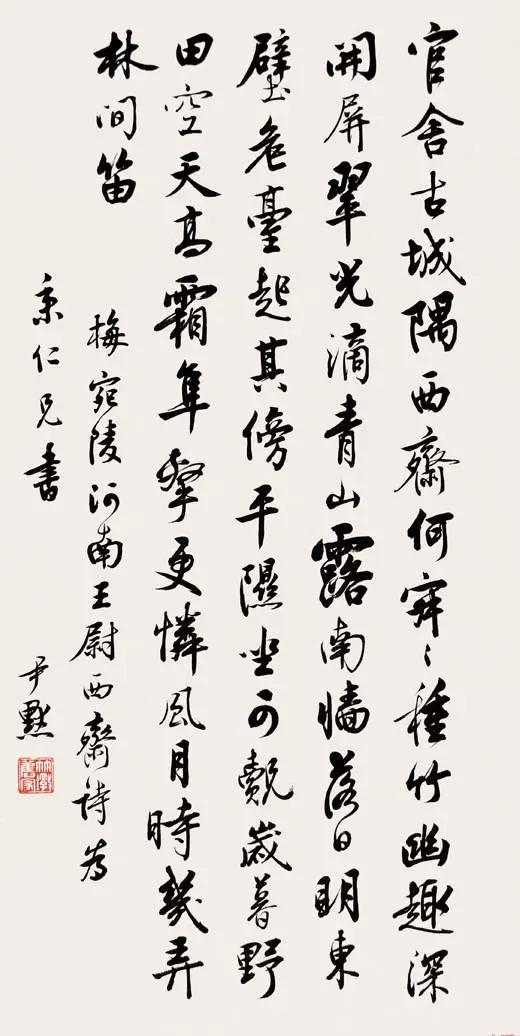 官舍古城隅西齋何寂〻種竹幽趣深
開屏翠光滴青山露南牆落日眀東
壁危臺起其傍平隰坐可覿歲暮野
田空天高霜隼擊更憐風月時幾弄
林間笛
梅宛陵河南王尉西齋詩為
秉仁兄書
尹默